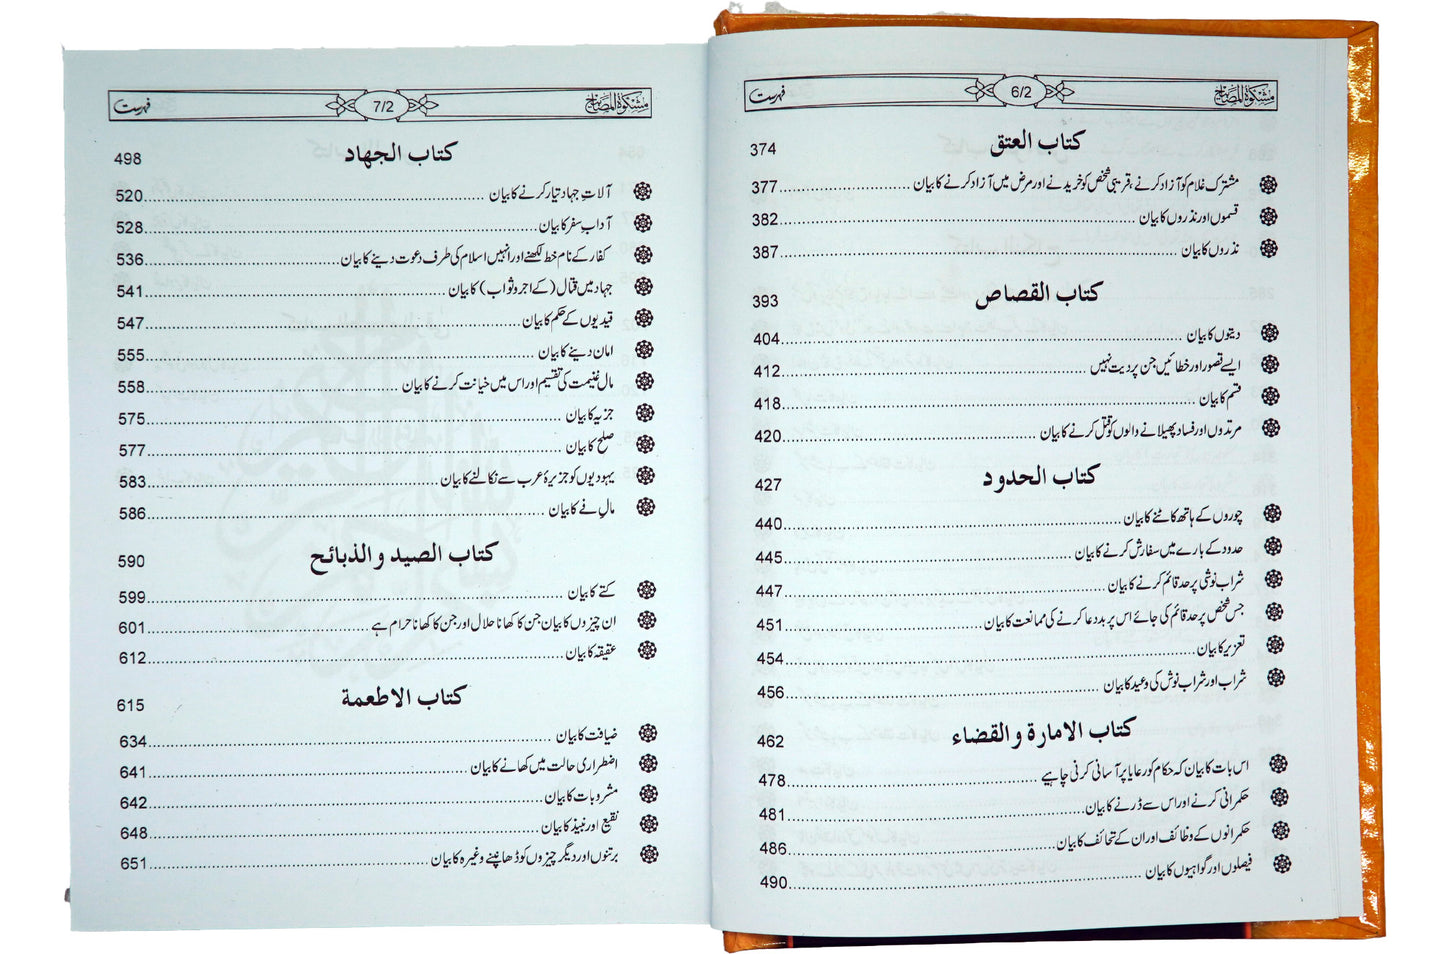 مشکوٰة المصابیح 6/2 فہرست
کتاب العتق 374
مشترک غلام کو آزاد کرنے، قریبی شخص کو خریدنے اور مرض میں آزاد کرنے کا بیان 377
قسموں اور نذروں کا بیان 382
نذروں کا بیان 387
کتاب القصاص 393
دیتوں کا بیان 404
ایسے قصور اور خطائیں جن پر دیت نہیں 412
قسم کا بیان 418
مرتدوں اور فساد پھیلانے والوں کو قتل کرنے کا بیان 420
کتاب الحدود 427
چوروں کے ہاتھ کاٹنے کا بیان 440
حدود کے بارے میں سفارش کرنے کا بیان 445
شراب نوشی پر حد قائم کرنے کا بیان 447
جس شخص پر حد قائم کی جائے اس پر بددعا کرنے کی ممانعت کا بیان 451
تعزیر کا بیان 454
شراب اور شراب نوش کی وعید کا بیان 456
کتاب الامارة والقضاء 462
اس بات کا بیان کہ حکام کو رعایا پر آسانی کرنی چاہیے 478
حکمرانی کرنے اور اس سے ڈرنے کا بیان 481
حکمرانوں کے وظائف اور ان کے تحائف کا بیان 486
فیصلوں اور گواہیوں کا بیان 490
مشکوٰة المصابیح 7/2 فہرست
کتاب الجهاد 498
آلاتِ جہاد تیار کرنے کا بیان 520
آداب سفر کا بیان 528
کفار کے نام خط لکھنے اور انہیں اسلام کی طرف دعوت دینے کا بیان 536
جہاد میں قتال (کے اجر و ثواب) کا بیان 541
قیدیوں کے حکم کا بیان 547
امان دینے کا بیان 555
مال غنیمت کی تقسیم اور اس میں خیانت کرنے کا بیان 558
جزیہ کا بیان 575
صلح کا بیان 577
یہودیوں کو جزیرۂ عرب سے نکالنے کا بیان 583
مالِ فے کا بیان 586
کتاب الصید والذبائح 590
کتے کا بیان 599
ان چیزوں کا بیان جن کا کھانا حلال اور جن کا کھانا حرام ہے 601
عقیقہ کا بیان 612
کتاب الاطعمة 615
ضیافت کا بیان 634
اضطراری حالت میں کھانے کا بیان 641
مشروبات کا بیان 642
نقیع اور نبیذ کا بیان 648
برتنوں اور دیگر چیزوں کو ڈھانپنے وغیرہ کا بیان 651